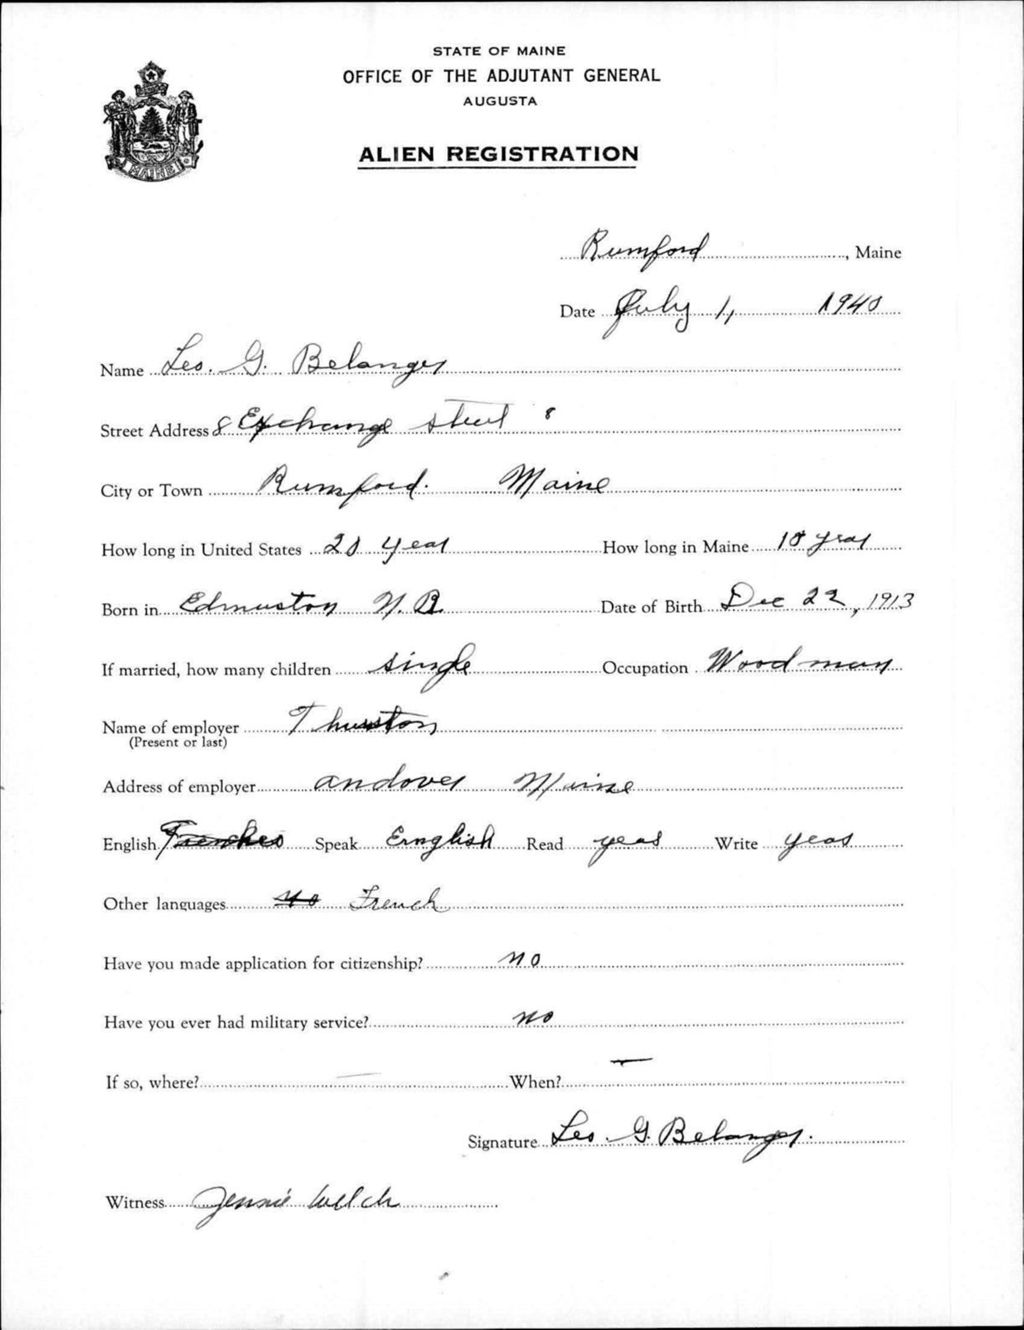 STATE OF MAINE
OFFICE OF THE ADJUTANT GENERAL
AUGUSTA
ALIEN REGISTRATION
MAINE
Rumford, Maine
Date July 1, 1940
Name Leo. G. Belanger
Street Address 8 Exchange Street 8
City or Town Rumford. Maine
How long in United States 20 year How long in Maine 10 year
Born in Edmuston N.B. Date of Birth Dec 22, 1913
If married, how many children single Occupation Woodman
Name of employer Thurston
(Present or last)
Address of employer andover Maine
English Speak Emglish Read yeas Write yeas
Other languages no French
Have you made application for citizenship? no
Have you ever had military service? no
If so, where? — When? —
Signature Leo. G. Belanger.
Witness Jennie Welch